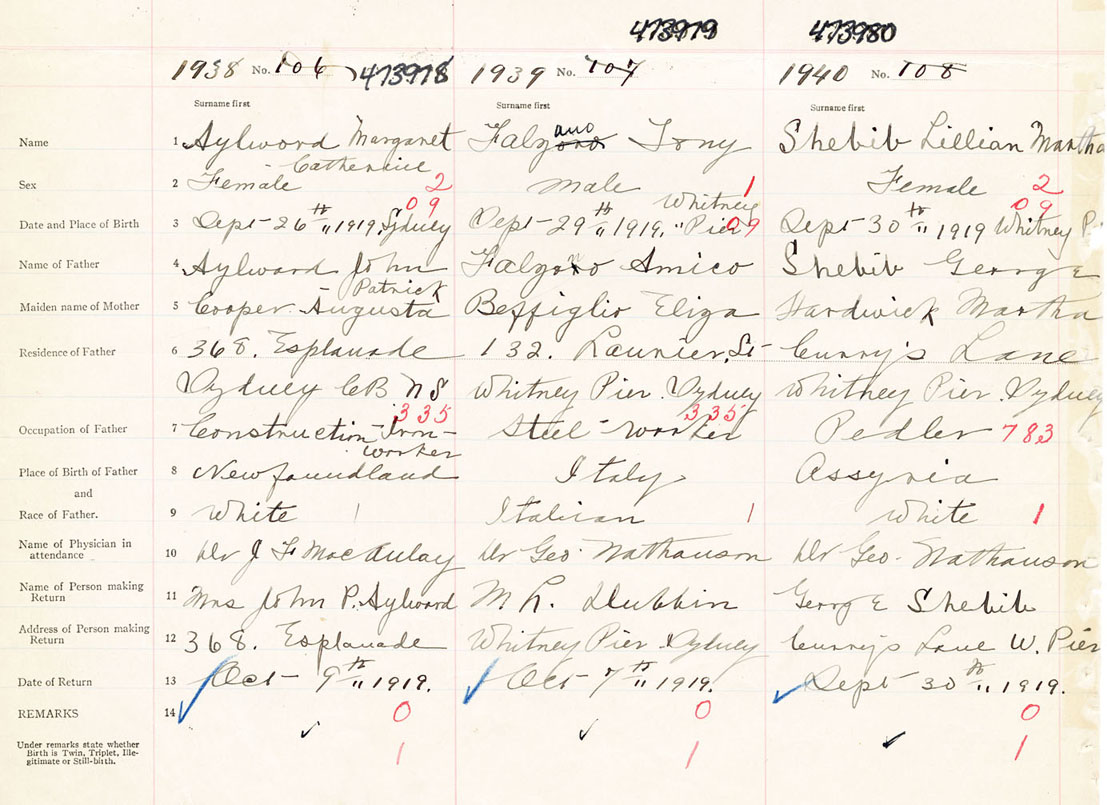 473979 473980
1938 No. 106 473978 1939 No. 107 1940 No. 108
Surname first Surname first Surname first
Name 1 Aylword Margaret Falzano Tony Shebib Lillian Martha
Catherine
Sex 2 Female 2 male 1 Female 2
09 Whitney 09
Date and Place of Birth 3 Sept 26th " 1919, Sydney Sept 29th " 1919, " Pier 09 Sept 30th " 1919 Whitney Pi
Name of Father 4 Aylward John Falzono Amico Shebib George
Patrick
Maiden name of Mother 5 Cooper Augusta Beffiglio Eliza Hardwick Martha
Residence of Father 6 368. Esplanade 132. Launier, St Curry's Lane
Sydney CB NS Whitney Pier. Sydney Whitney Pier. Sydney
335 335
Occupation of Father 7 Construction Iron- Steel worker Pedler 783
worker
Place of Birth of Father 8 Newfoundland Italy Assyria
and
Race of Father. 9 White 1 Italian 1 White 1
Name of Physician in attendance 10 Dr J F MacAulay Dr Geo. Nathanson Dr Geo. Nathanson
Name of Person making Return 11 Mrs John P. Aylward M. L. Dubbin George Shebib
Address of Person making Return 12 368. Esplanade Whitney Pier Sydney Curry's Lane W. Pier
Date of Return 13 Oct 9th " 1919. Oct 7th " 1919. Sept 30th " 1919.
REMARKS 14 0 0 0
Under remarks state whether
Birth is Twin, Triplet, Ille-
gitimate or Still-birth. 1 1 1